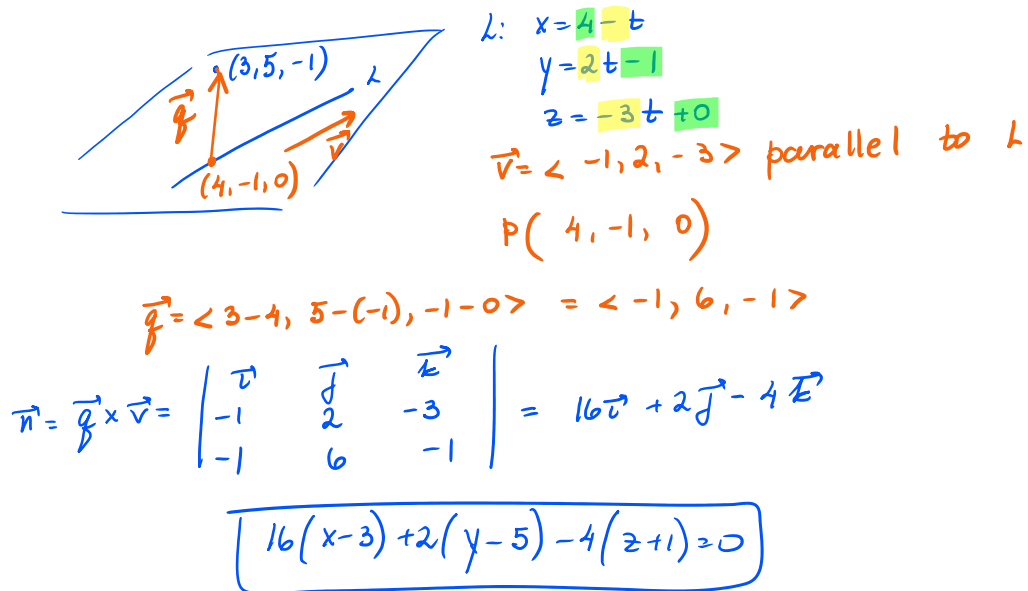 (3,5,-1)
L
q⃗
v⃗
(4,-1,0)
L: x = 4 - t
y = 2t - 1
z = -3t + 0
v⃗ = < -1, 2, -3 > parallel to L
P( 4, -1, 0)
q⃗ = < 3-4, 5-(-1), -1-0 > = < -1, 6, -1 >
n⃗ = q⃗ × v⃗ = | i⃗ j⃗ k⃗ |
| -1 2 -3 | = 16i⃗ + 2j⃗ - 4k⃗
| -1 6 -1 |
16(x-3) + 2(y-5) - 4(z+1) = 0